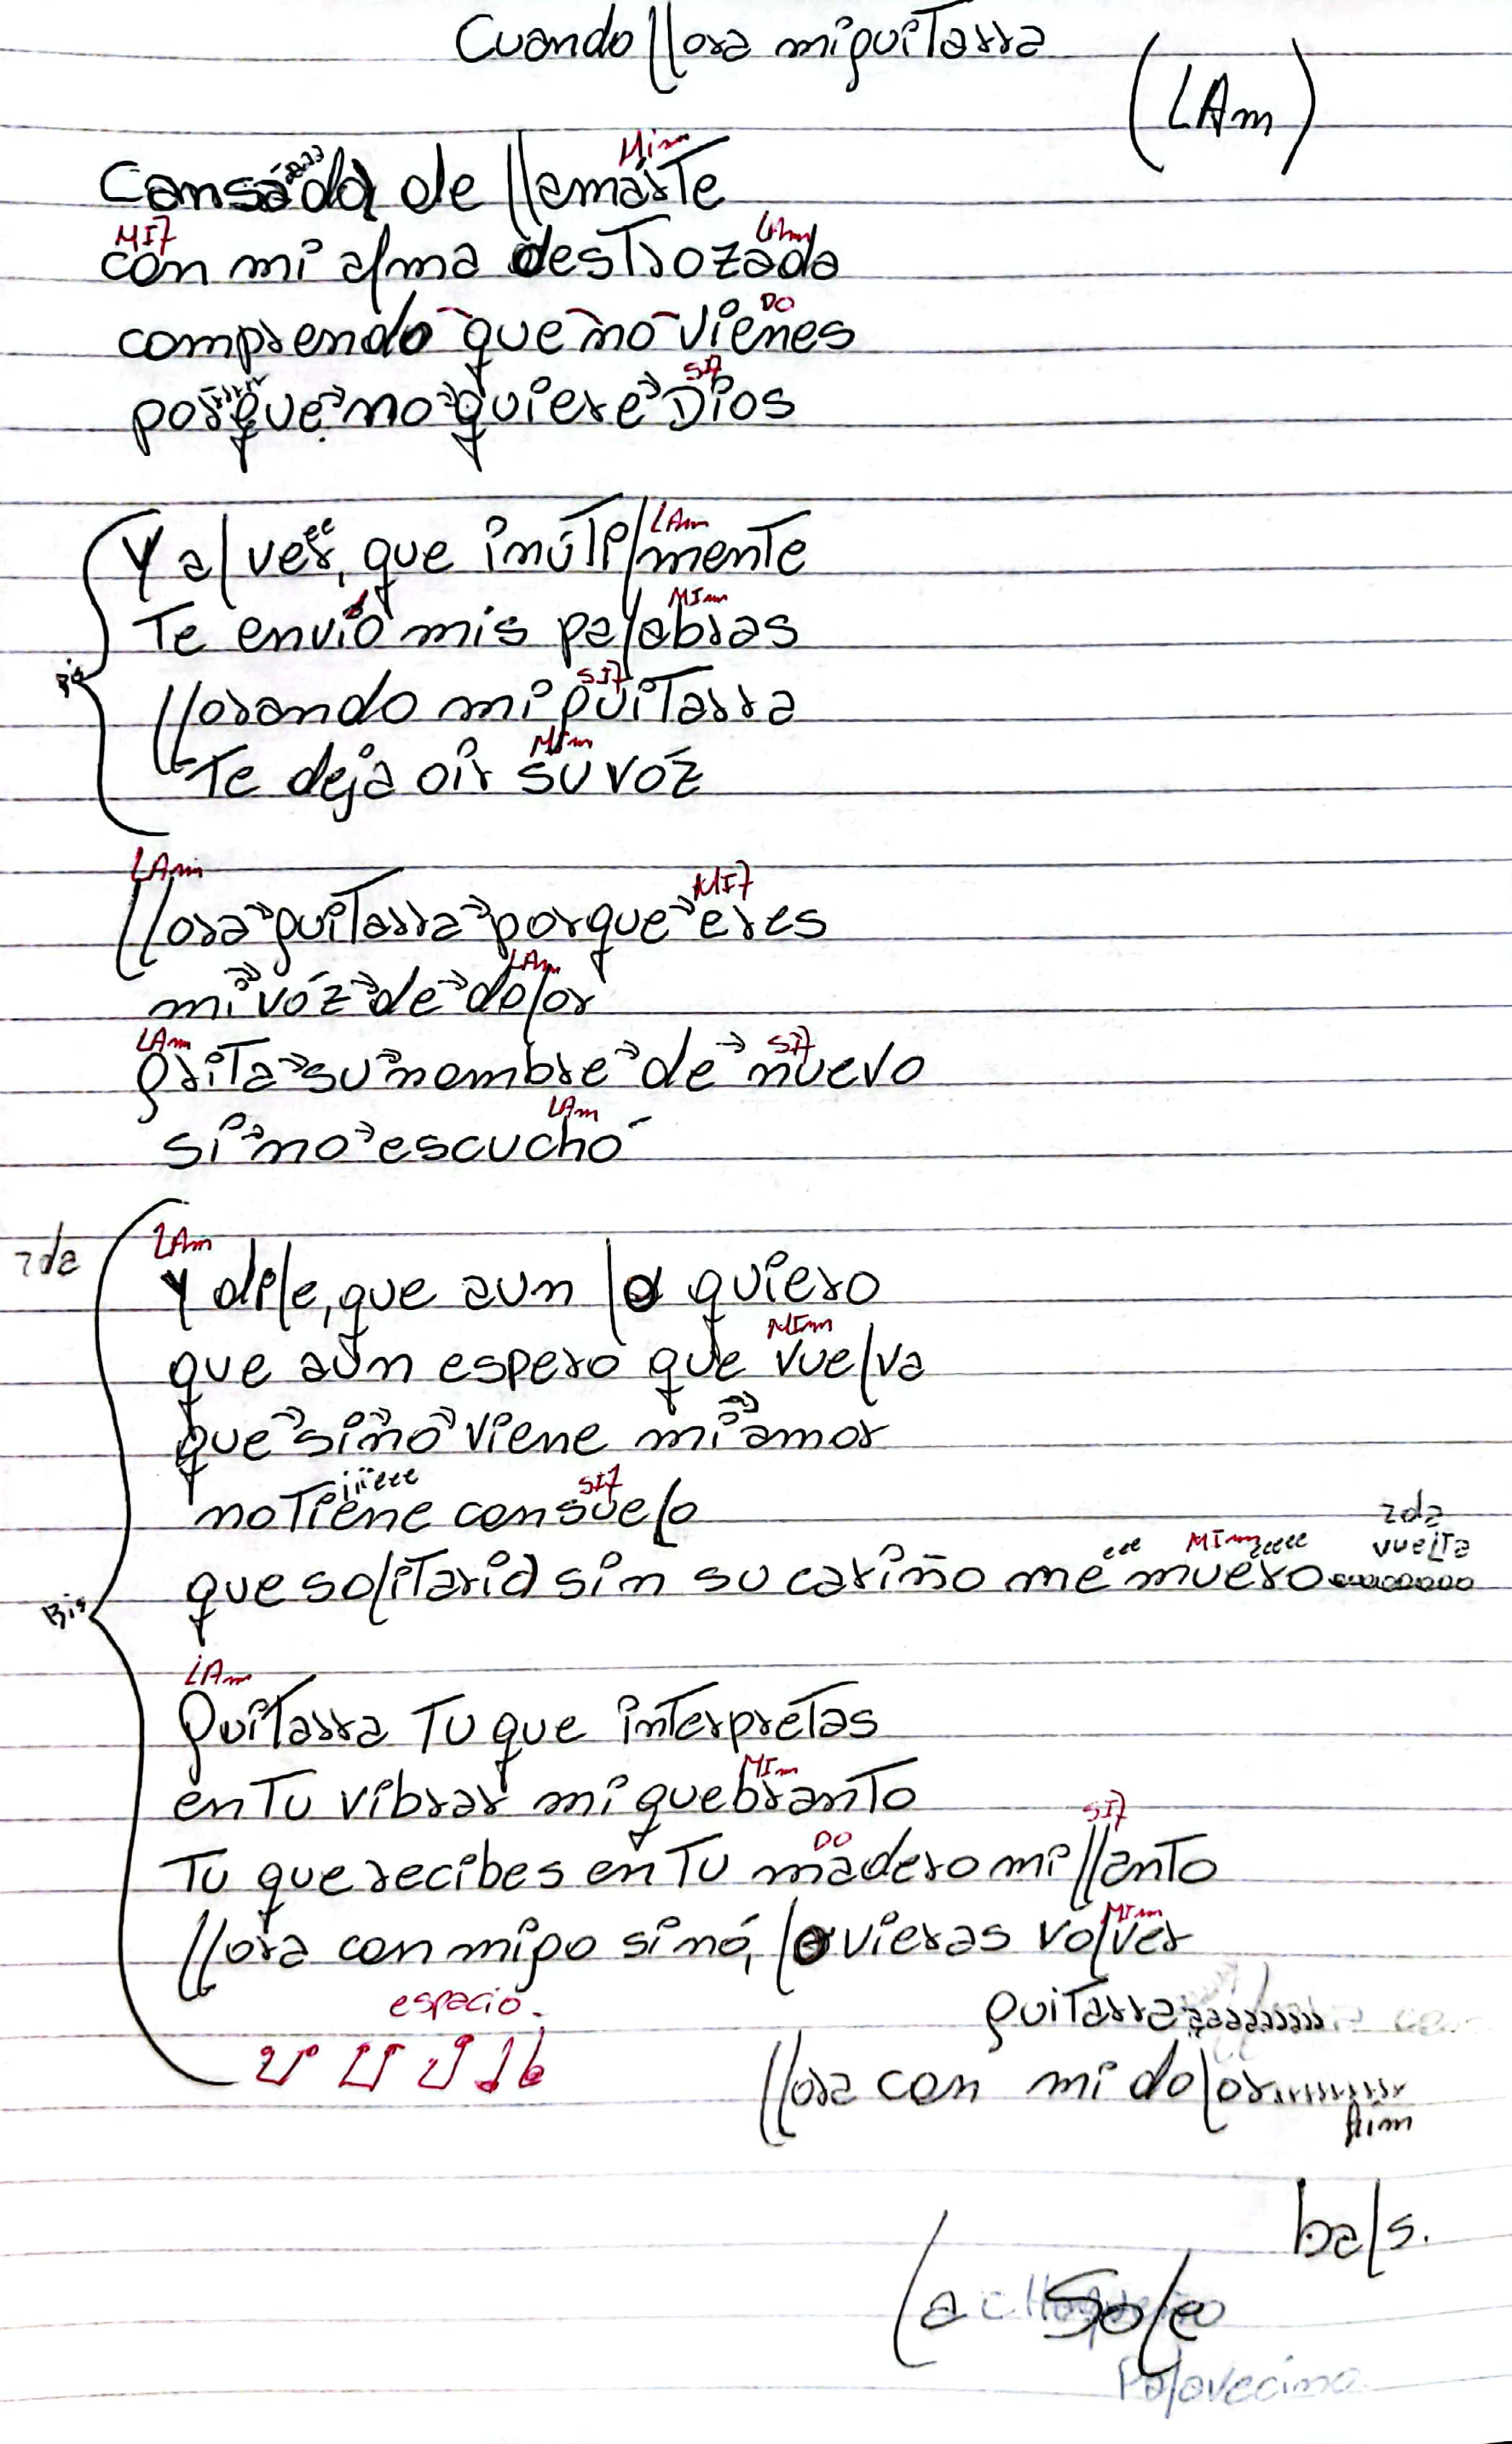 Cuando llora mi guitarra
(LAm)
MIm
Cansada de llamarte
MI7 LAm
con mi alma destrozada
DO
comprendo que no vienes
SI7
porque no quiere Dios
LAm
Y al ver, que inútilmente
MIm
Te envío mis palabras
SI7
Bis
llorando mi guitarra
MIm
Te deja oir su vóz
LAm MI7
llora guitarra porque eres
LAm
mi vóz de dolor
LAm SI7
grita su nombre de nuevo
LAm
si no escuchó
2da
LAm
Y dile, que aun lo quiero
MIm
que aun espero que vuelva
que si no viene mi amor
iiieee SI7
no Tiene consuelo
eee MIm eeee 2da vuelta
que solitaria sin su cariño me muero oooooooo
Bis
LAm
Guitarra Tu que interpretas
MIm
en Tu vibrar mi quebranto
DO SI7
Tu que recibes en Tu madero mi llanto
MIm
llora conmigo si nó, lo vieras volver
espacio.
guitarra aaaaaaaa
llora con mi dolor rrrrrrrr
fiim
bals.
la Sole
Palavecino